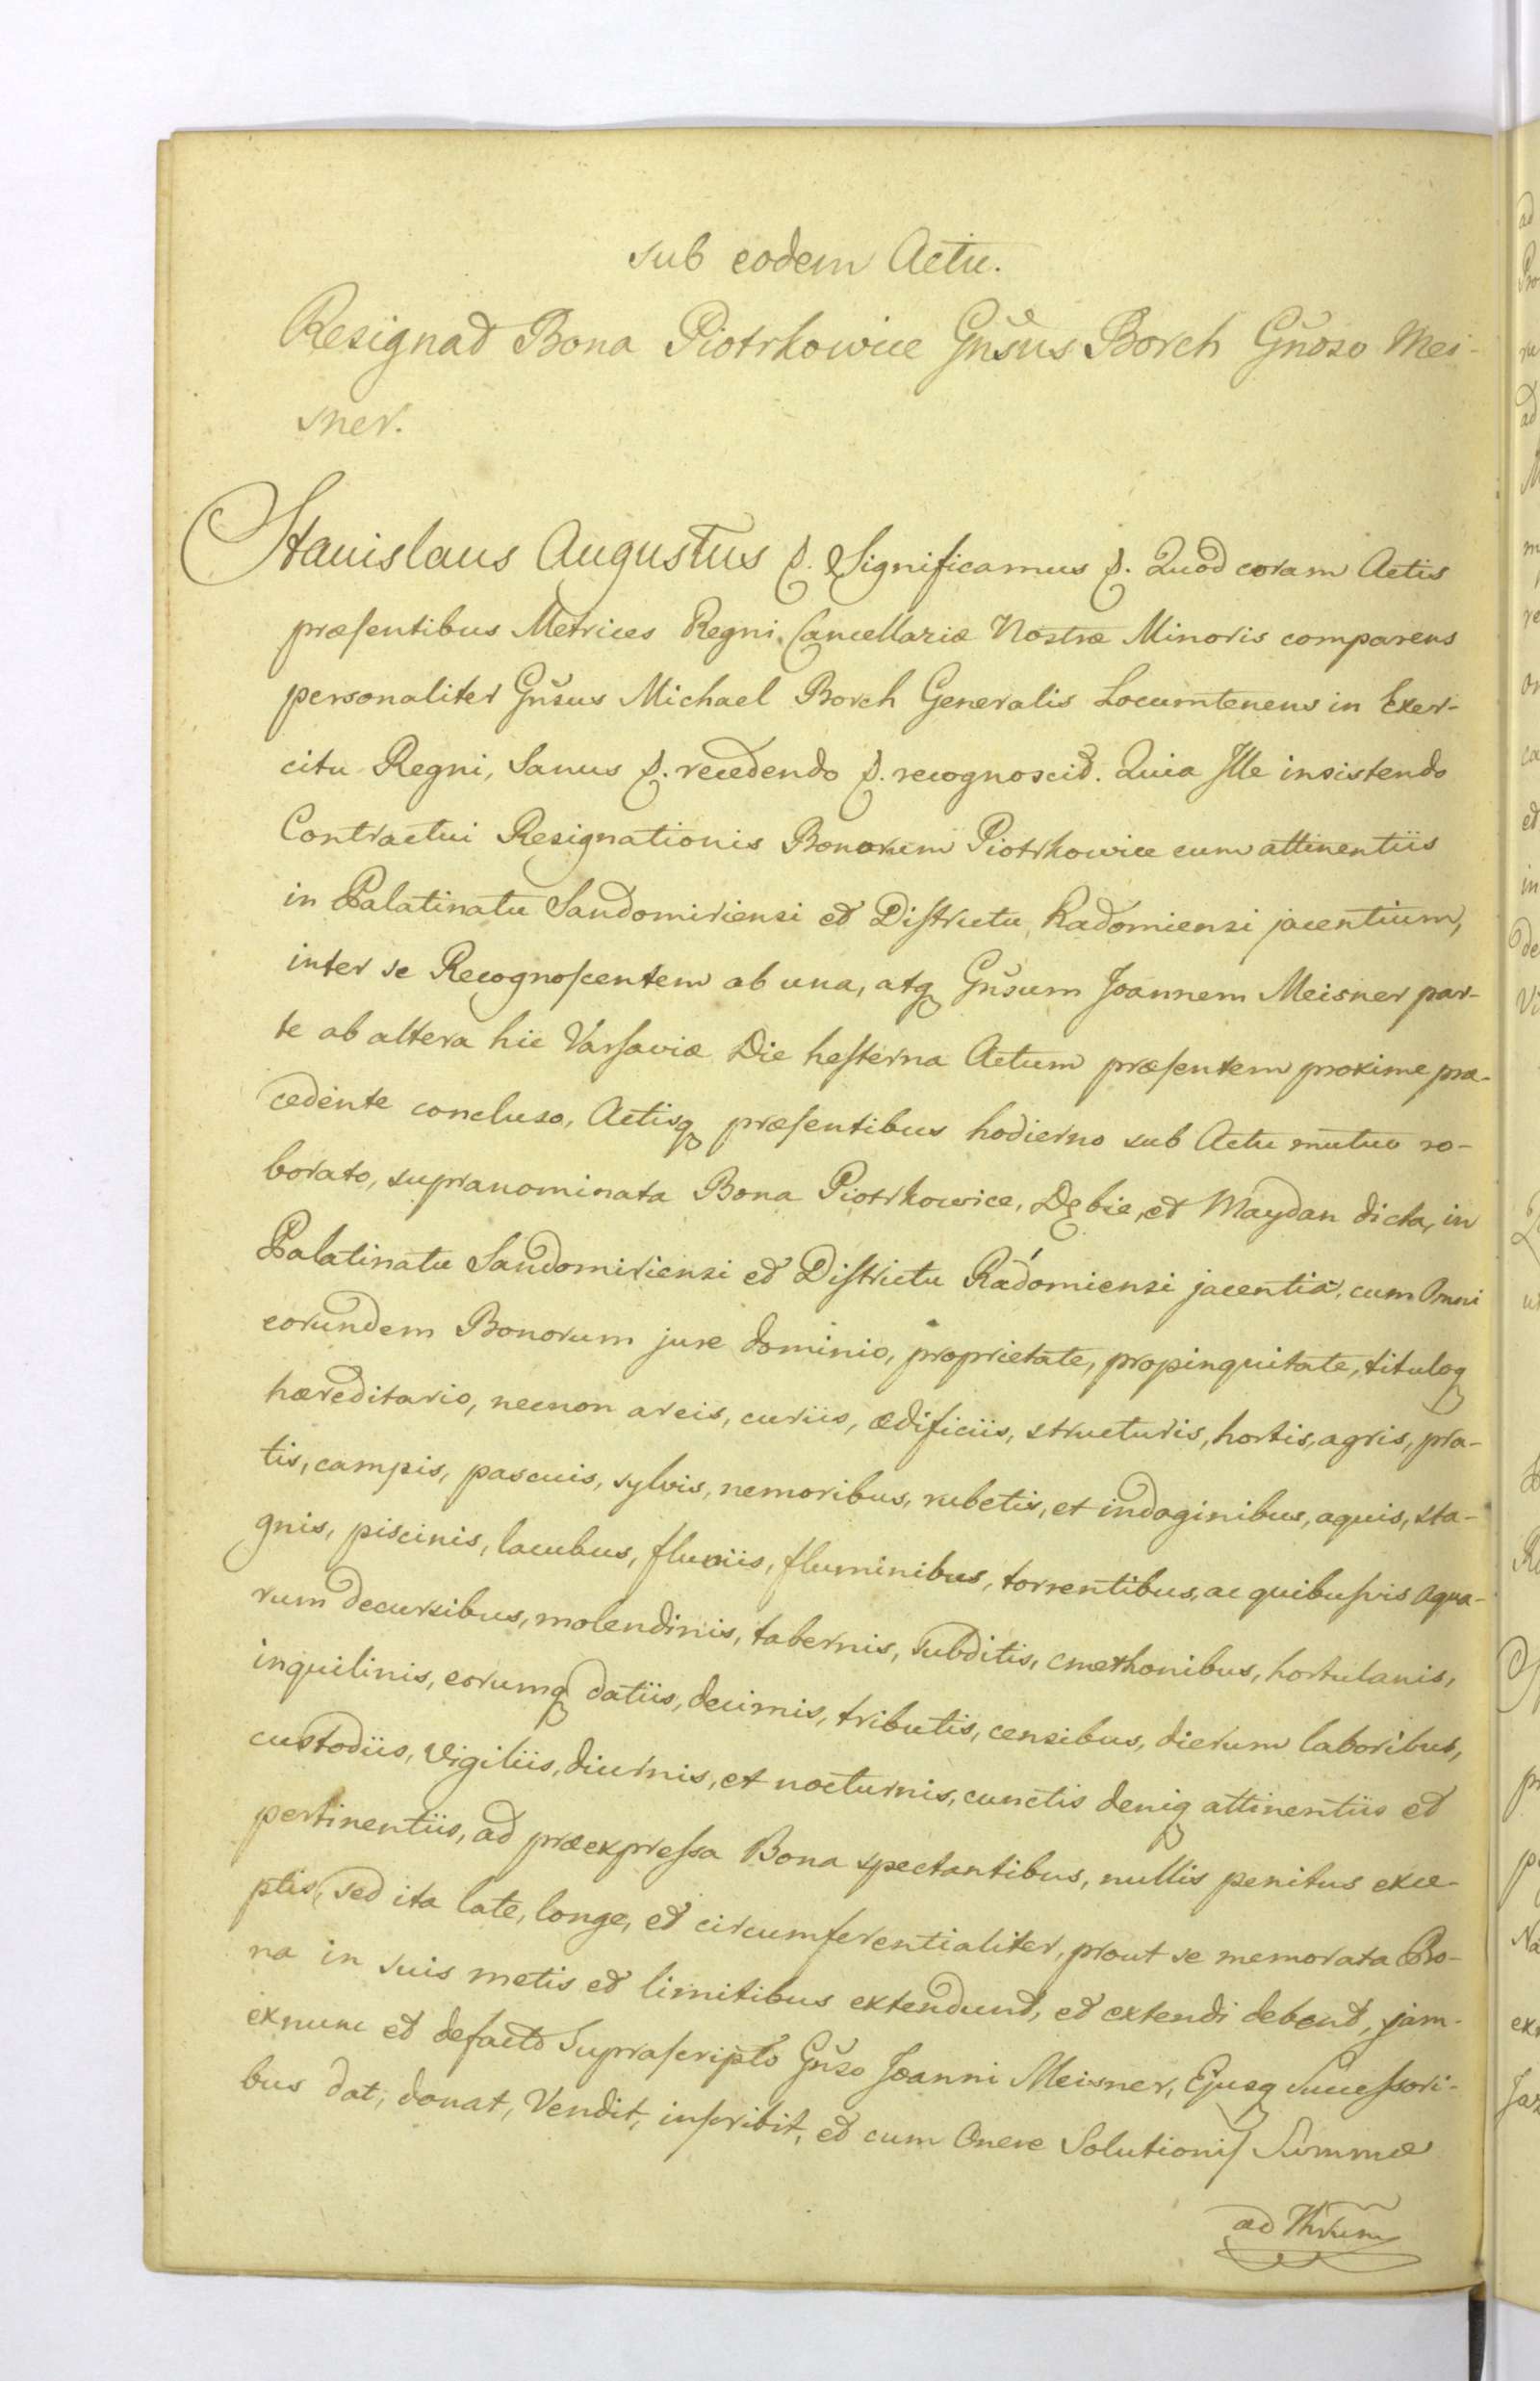 sub eodem Actu.
Resignat Bona Piotrkowice Gn̄sus Borch Gn̄oso Mei-
sner.
Stanislaus Augustus &. Significamus &. Quod coram Actis
præſentibus Metrices Regni, Cancellariæ Nostræ Minoris comparens
personaliter Gn̄sus Michael Borch Generalis Locumtenens in Exer-
citu Regni, Sanus &. recedendo &. recognoscit. Quia Ille insistendo
Contractui Resignationis Bonorum Piotrkowice cum attinentiis
in Palatinatu Sandomiriensi et Diſtrictu Radomiensi jacentium,
inter se Recognoſcentem ab una, atq Gn̄sum Joannem Meisner par-
te ab altera hic Varſaviæ Die heſterna Actum præſentem proxime præ-
cedente concluso, Actisq præſentibus hodierno sub Actu mutuo ro-
borato, supranominata Bona Piotrkowice, Dębie, et Maydan dicta, in
Palatinatu Sandomiriensi et Diſtrictu Radomiensi jacentia, cum Omni
eorundem Bonorum jure dominio, proprietate, propinquitate, tituloq
hæreditario, necnon arcis, curiis, ædificiis, structuris, hortis, agris, pra-
tis, campis, pascuis, sylvis, nemoribus, rubetis, et indaginibus, aquis, sta-
gnis, piscinis, lacubus, fluviis, fluminibus, torrentibus, ac quibuſvis aqua-
rum decursibus, molendinis, tabernis, subditis, cmethonibus, hortulanis,
inquilinis, eorumq datiis, decimis, tributis, censibus, dierum laboribus,
custodiis, vigiliis, diurnis, et nocturnis, cunctis deniq attinentiis et
pertinentiis, ad præexpreſsa Bona spectantibus, nullis penitus exce-
ptis, sed ita late, longe, et circumferentialiter, prout se memorata Bo-
na in suis metis et limitibus extendunt, et extendi debent, jam-
exnunc et defacto Supraſcripto Gn̄so Joanni Meisner, Ejusq Succeſsori-
bus dat, donat, Vendit, inſcribit, et cum Onere Solutioniſ Summæ
ad